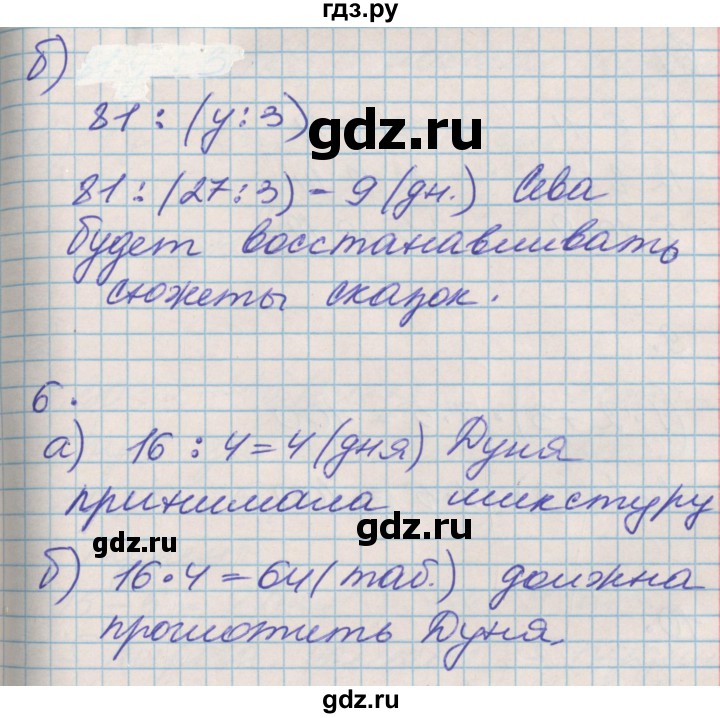 гдз.ру
б)
81 : (у : 3)
gdz.ru
81 : (27 : 3) = 9 (дн.) Сева
будет восстанавливать
сюжеты сказок.
6.
а) 16 : 4 = 4 (дня) Дуня
принимала микстуру
gdz.ru
gdz.ru
б) 16 · 4 = 64 (таб.) должна
проглотить Дуня.
gdz.ru